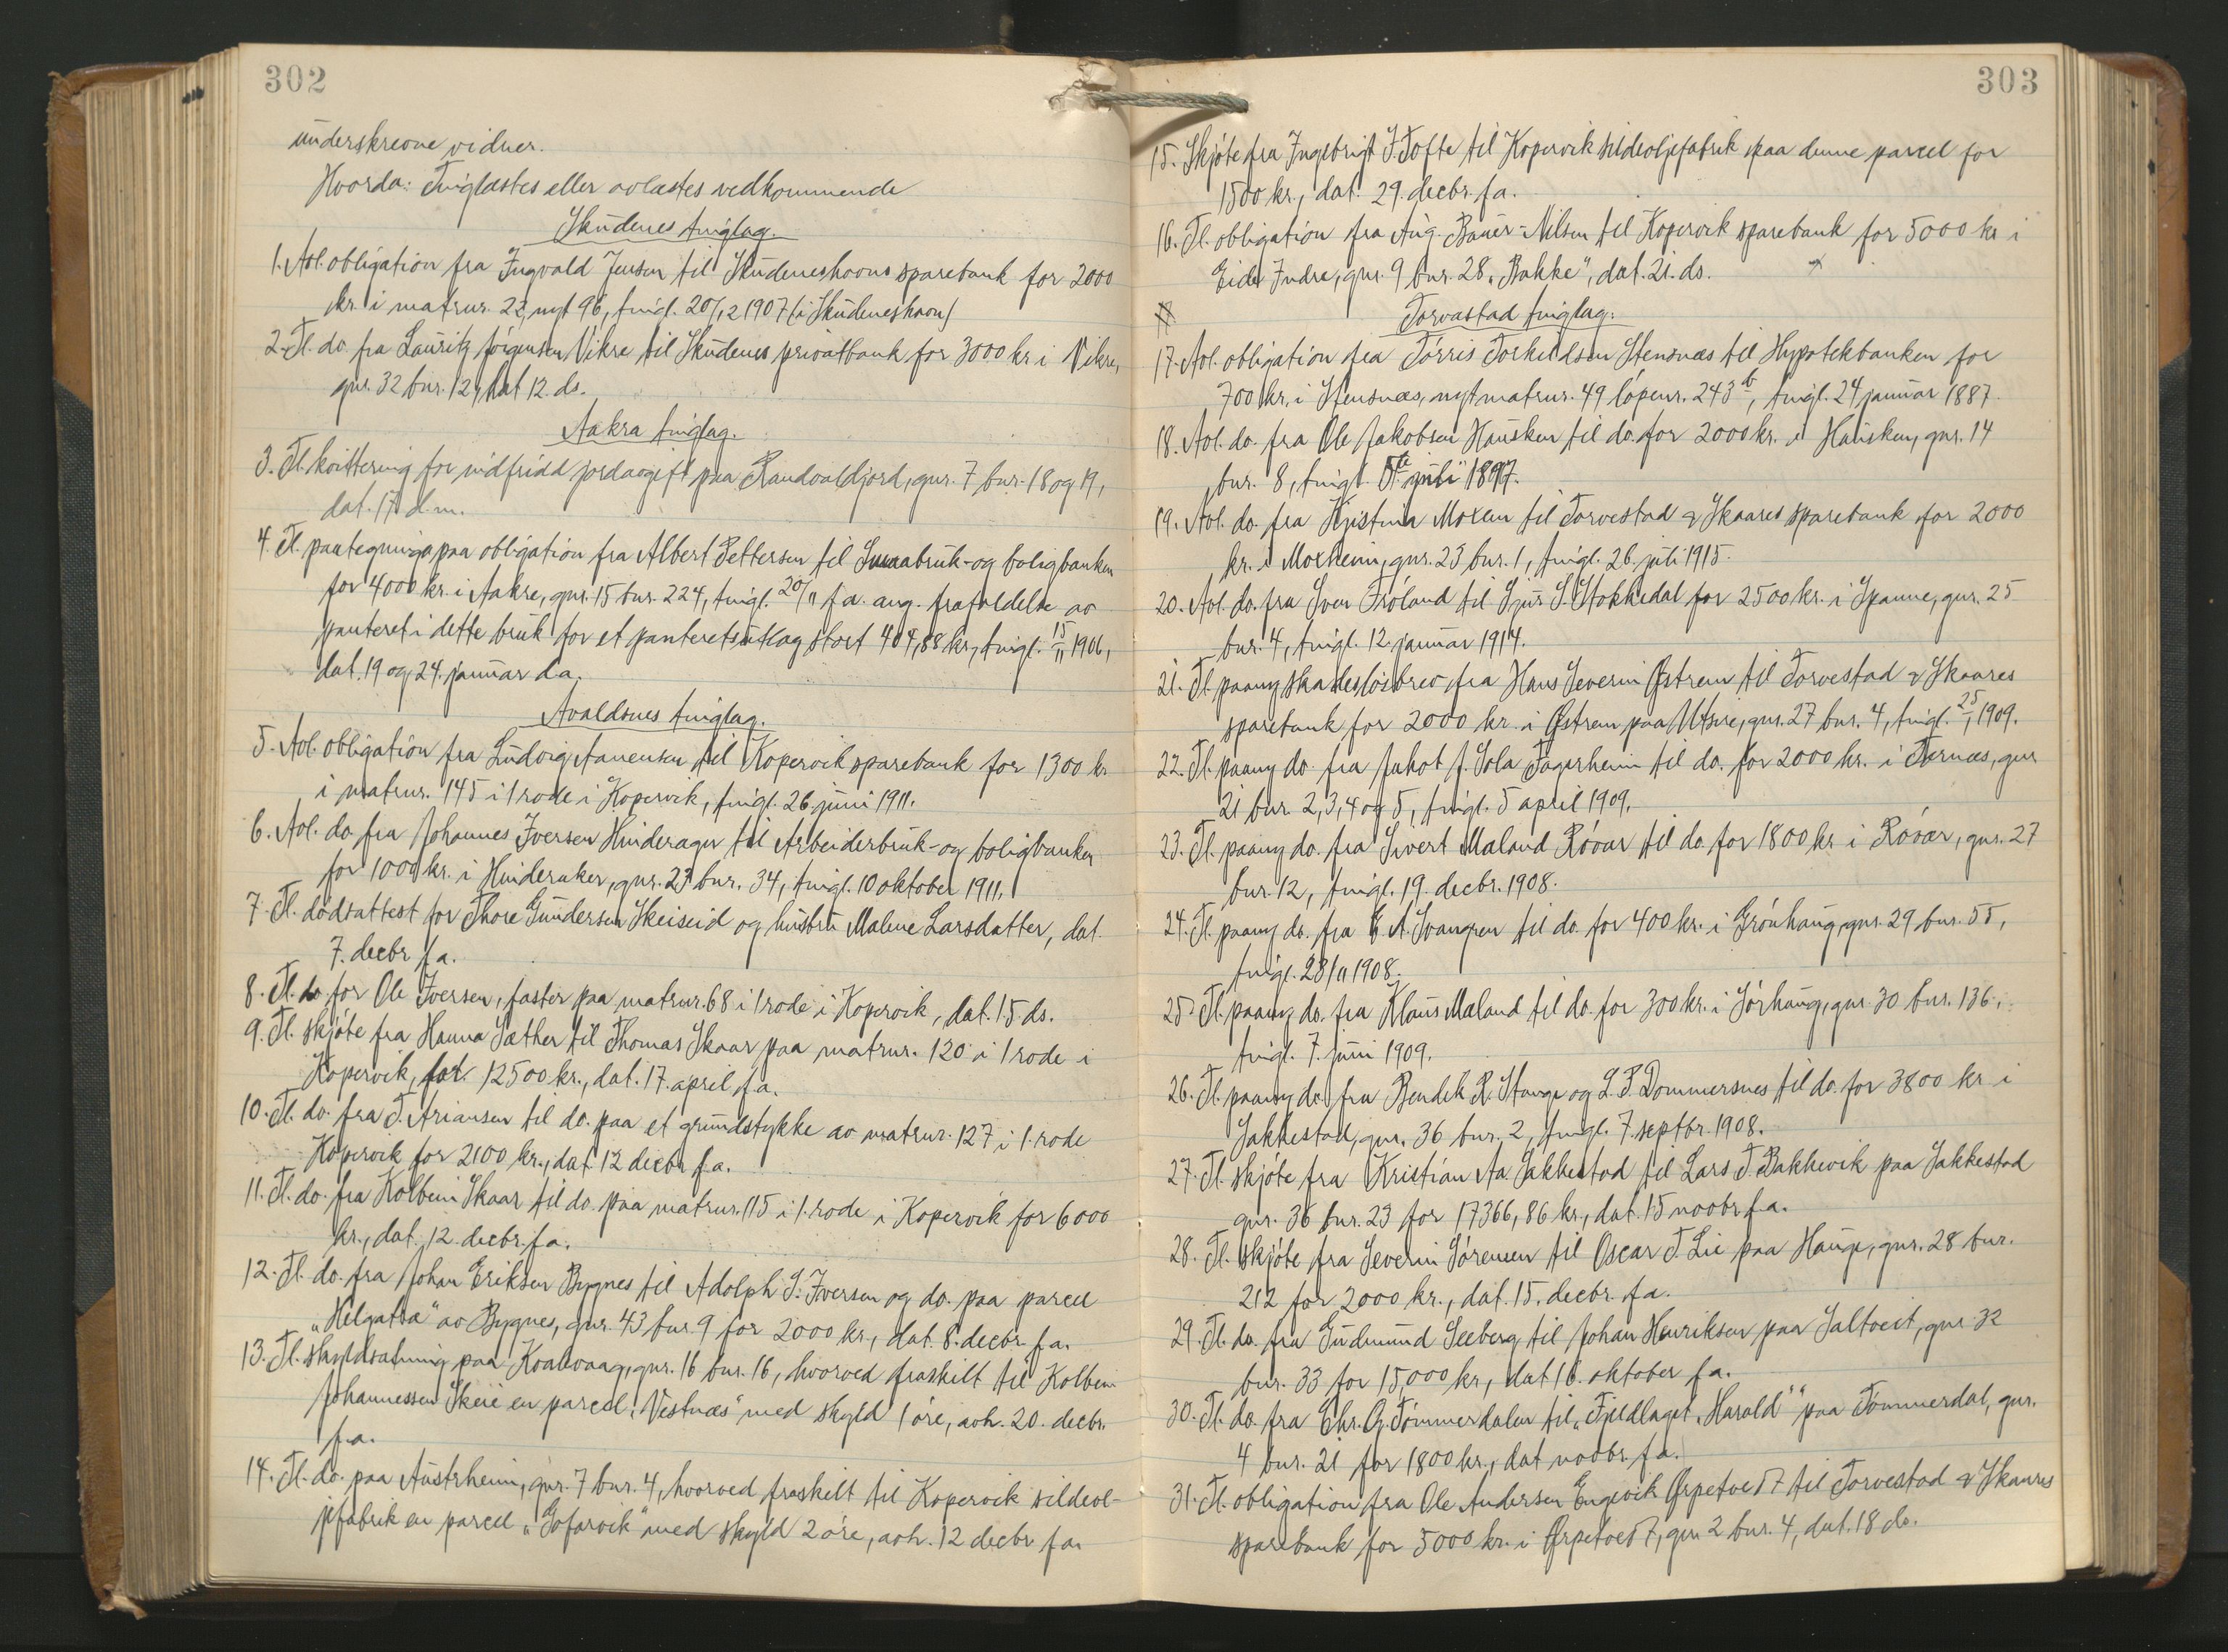 302
underskrevne vidner.
Hvorda: Tinglæstes eller avlæstes vedkommende
Skudenes tinglag.
1. Avl. obligation fra Ingvald Jensen til Skudeneshavns sparebank for 2000
kr. i matrnr. 22, nyt 96, tingl. 20/12 1907 (i Skudeneshavn)
2. Tl. do. fra Lauritz Jørgensen Vikre til Skudenes privatbank for 3000 kr. i Vikre,
gnr. 32 bnr. 12, dat 12. ds.
Aakra tinglag.
3. Tl. kvittering for indfridd jordavgift paa Sandvaldjord, gnr. 7 bnr. 18 og 19,
dat. 17 d.m.
4. Tl. paategning paa obligation fra Albert Pettersen til Smaabruk- og boligbanken
for 4000 kr. i Aakre, gnr. 15 bnr. 224, tingl. 20/11 f.a. ang. frafaldelse av
panteret i dette bruk for et panteretsutlæg stort 404,88 kr., tingl. 15/11 1906,
dat. 19 og 24. januar d.a.
Avaldsnes tinglag.
5. Avl. obligation fra Ludvig Aanensen til Kopervik sparebank for 1300 kr.
i matrnr. 145 i 1 rode i Kopervik, tingl. 26. juni 1911.
6. Avl. do. fra Johannes Iversen Hinderager til Arbeiderbruk- og boligbanken
for 1000 kr. i Hinderaker, gnr. 23 bnr. 34, tingl. 10 oktober 1911.
7. Tl. dødsattest for Thore Gundersen Skeiseid og hustru Malene Larsdatter, dat.
7. decbr f.a.
8. Tl. do. for Ole Iversen, fæster paa matrnr. 68 i 1 rode i Kopervik, dat. 15 ds.
9. Tl. skjøte fra Hanna Sæther til Thomas Skaar paa matrnr. 120 i 1 rode i
Kopervik, for 12500 kr., dat. 17. april f.a.
10. Tl. do. fra T. Ariansen til do. paa et grundstykke av matrnr. 127 i 1. rode
Kopervik for 2100 kr., dat 12 decbr f.a.
11. Tl. do. fra Kolbein Skaar til do. paa matrnr. 115 i 1. rode i Kopervik for 6000
kr., dat. 12. decbr. f.a.
12. Tl. do. fra Johan Eriksen Bygnes til Adolph S. Iversen og do. paa parcel
av Bygnes, gnr. 43 bnr. 9 for 2000 kr., dat. 8. decbr. f.a.
13. Tl. skyldsætning paa Kvalvaag, gnr. 16 bnr. 16, hvorved fraskilt til Kolbein
Johannessen Skeie en parcel „Vestnæs" med skyld 1 øre, avh. 20. decbr.
f.a.
14. Tl. do. paa Austrheim, gnr. 7 bnr. 4, hvorved fraskilt til Kopervik sildeol-
jefabrik en parcel „Gofarvik" med skyld 2 øre, avh. 12 decbr f.a.
303
15. Skjøte fra Ingebrigt I. Tofte til Kopervik sildeoljefabrik paa denne parcel for
1500 kr., dat. 29. decbr. f.a.
16. Tl. obligation fra Aug. Bauer-Nilsen til Kopervik sparebank for 5000 kr i
Eide Indre, gnr. 9 bnr. 28 „Bakke", dat. 21. ds.
Torvastad tinglag.
17. Avl. obligation fra Tørris Torkeldsen Stensnæs til Hypotekbanken for
700 kr. i Stensnæs, nyt matrnr. 49 løpenr. 243 b, tingl. 24 januar 1887.
18. Avl. do. fra Ole Jakobsen Hausken til do. for 2000 kr. i Hausken, gnr. 14
bnr. 8, tingl. 5te juli 1897.
19. Avl. do. fra Kristina Moxen til Torvestad & Skaares sparebank for 2000
kr. i Moxheim, gnr. 23 bnr. 1, tingl. 26. juli 1915.
20. Avl. do. fra Sven Frøland til S. Stokkedal for 2500 kr. i Spanne, gnr. 25
bnr. 4, tingl. 12. januar 1914.
21. Tl. paany skadesløsbrev fra Hans Severin Østrem til Torvestad & Skaares
sparebank for 2000 kr. i Østrem paa Utsire, gnr. 27 bnr. 4, tingl. 25/1 1909.
22. Tl. paany do. fra Jakob J. Sola Fagerheim til do. for 2000 kr. i Ternæs, gnr
21 bnr. 2, 3, 4 og 5, tingl. 5 april 1909.
23. Tl. paany do. fra Sivert Maland Røvær til do. for 1800 kr i Røvær, gnr. 27
bnr. 12, tingl. 19. decbr. 1908.
24. Tl. paany do. fra A. Svangren til do. for 400 kr. i Grønhaug, gnr. 29 bnr. 55,
tingl. 28/11 1908.
25. Tl. paany do. fra Klaus Maland til do. for 300 kr. i Sørhaug, gnr. 30 bnr. 136,
tingl. 7. juni 1909.
26. Tl. paany do. fra Bendik R. Stange og L. P. Dommersnes til do. for 3800 kr i
Sakkestad, gnr. 36 bnr. 2, tingl. 7. septbr. 1908.
27. Tl. skjøte fra Kristian Aa. Sakkestad til Lars T. Bakkevik paa Sakkestad
gnr. 36 bnr. 23 for 17366,86 kr., dat. 15 novbr. f.a.
28. Tl. skjøte fra Severin Sørensen til Oscar T. Lie paa Hauge, gnr. 28 bnr.
212 for 2000 kr., dat. 15. decbr. f.a.
29. Tl. do. fra Gudmund Seeberg til Johan Henriksen paa Saltveit, gnr 32
bnr. 33 for 15,000 kr., dat 16. oktober f.a.
30. Tl. do. fra Chr. G. Tømmerdalen til „Fjeldlaget „Harald"" paa Tømmerdal, gnr.
4 bnr. 21 for 1800 kr., dat novbr. f.a.
31. Tl. obligation fra Ole Andersen Engevik Ørpetvedt til Torvestad & Skaares
sparebank for 5000 kr. i Ørpetvedt, gnr 2 bnr. 4, dat. 18 ds.